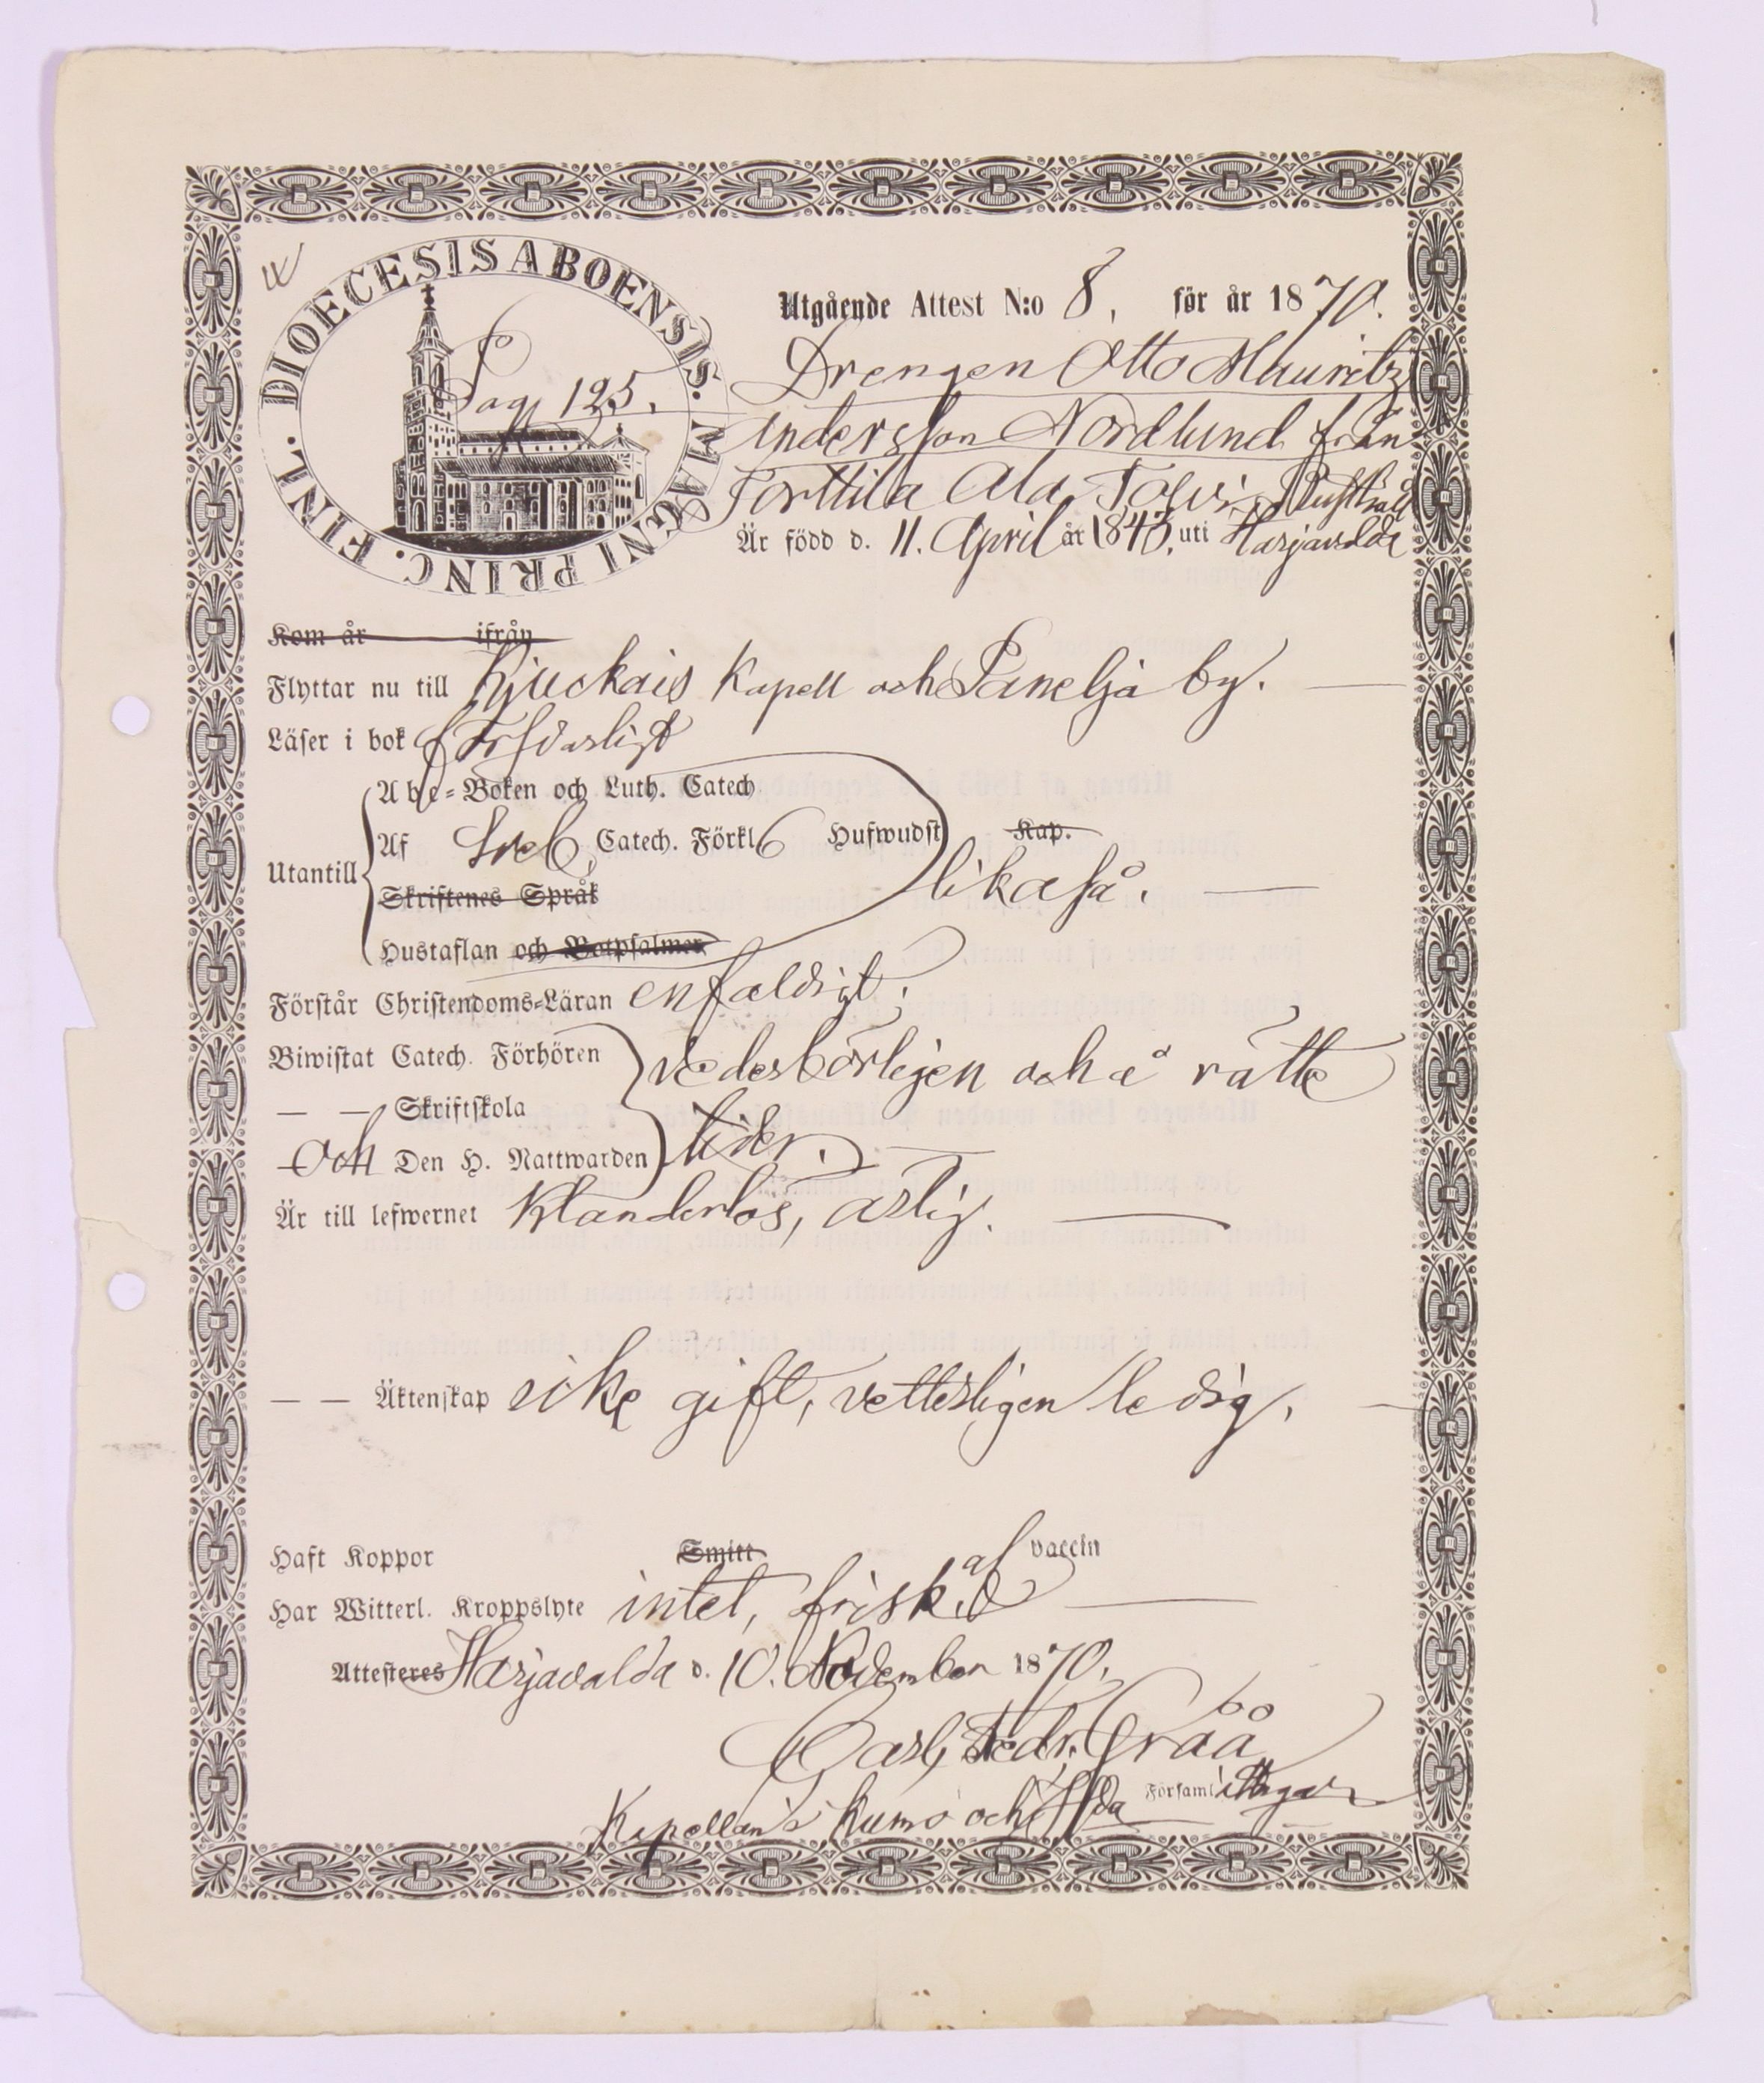 DIOECESIS ABOENSIS. MAGNI PRINC. FINL.
Pag. 125.
Utgående Attest N:o 8. för år 1870.
Drengen Otto Mauritz
Andersson Nordlund från
Torttila Ala
Är född d. 11. April år 1843. uti Harjavalda
Kom år ifrån
Flyttar nu till Kjuckais Kapell och Panelja by.
Läser i bok försvarligt
Abc-Boken och Luth. Catech
Af Sveb. Catech. Förkl 6 Hufwudst Kap.
Utantill likaså.
Skriftenes Språk
Hustaflan och Botpsalmer
Förstår Christendoms-Läran enfaldigt.
Biwistat Catech. Förhören vederbörligen och å rätte
— — Skriftskola
och Den H. Nattwarden tider.
Är till lefwernet klanderlös, ärlig.
— — Äktenskap icke gift, vetterligen ledig.
Haft Koppor Smitt af vaccin
Har Witterl. Kroppslyte intet, frisk.
Attesteres Harjavalda d. 10. November 1870.
Carl Fredr. Gråå
Kapellan i Kumo och Hda Församlingar